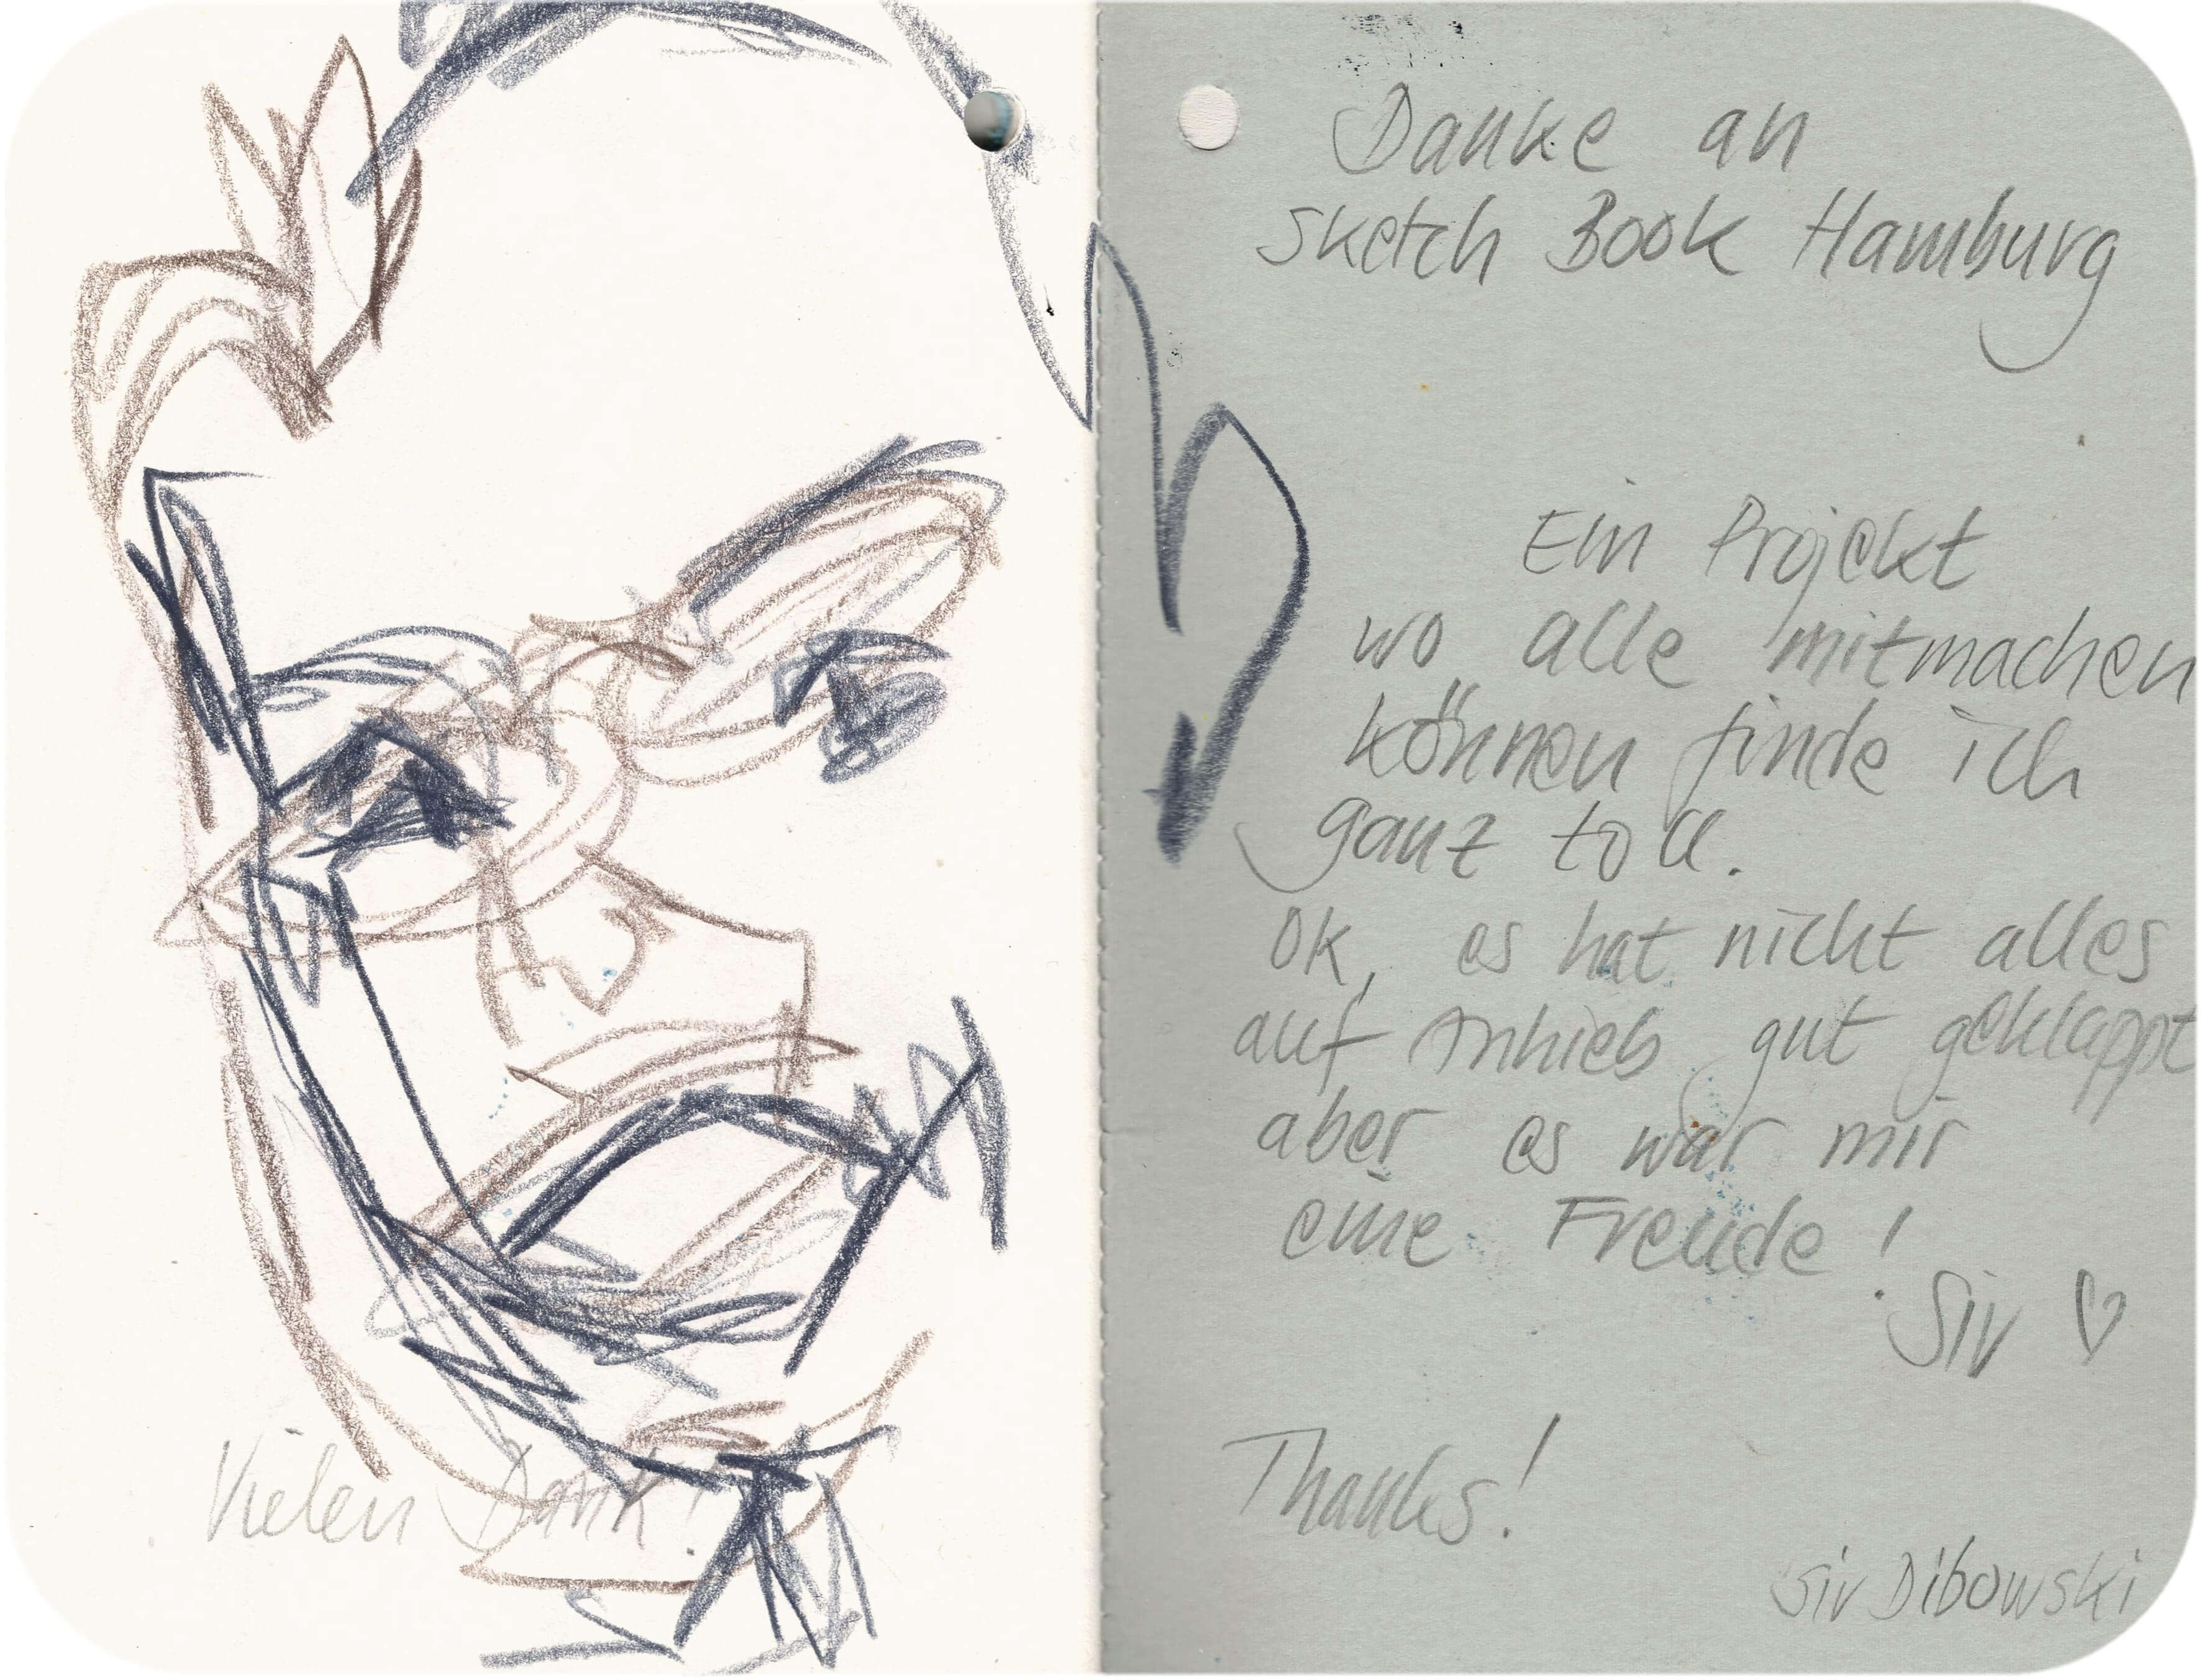 Vielen Dank!
Danke an
Sketch Book Hamburg
Ein Projekt
wo alle mitmachen
können finde ich
ganz toll.
Ok, es hat nicht alles
auf Anhieb gut geklappt
aber es war mir
eine Freude!
Siv ♡
Thanks!
Siv Dibowski